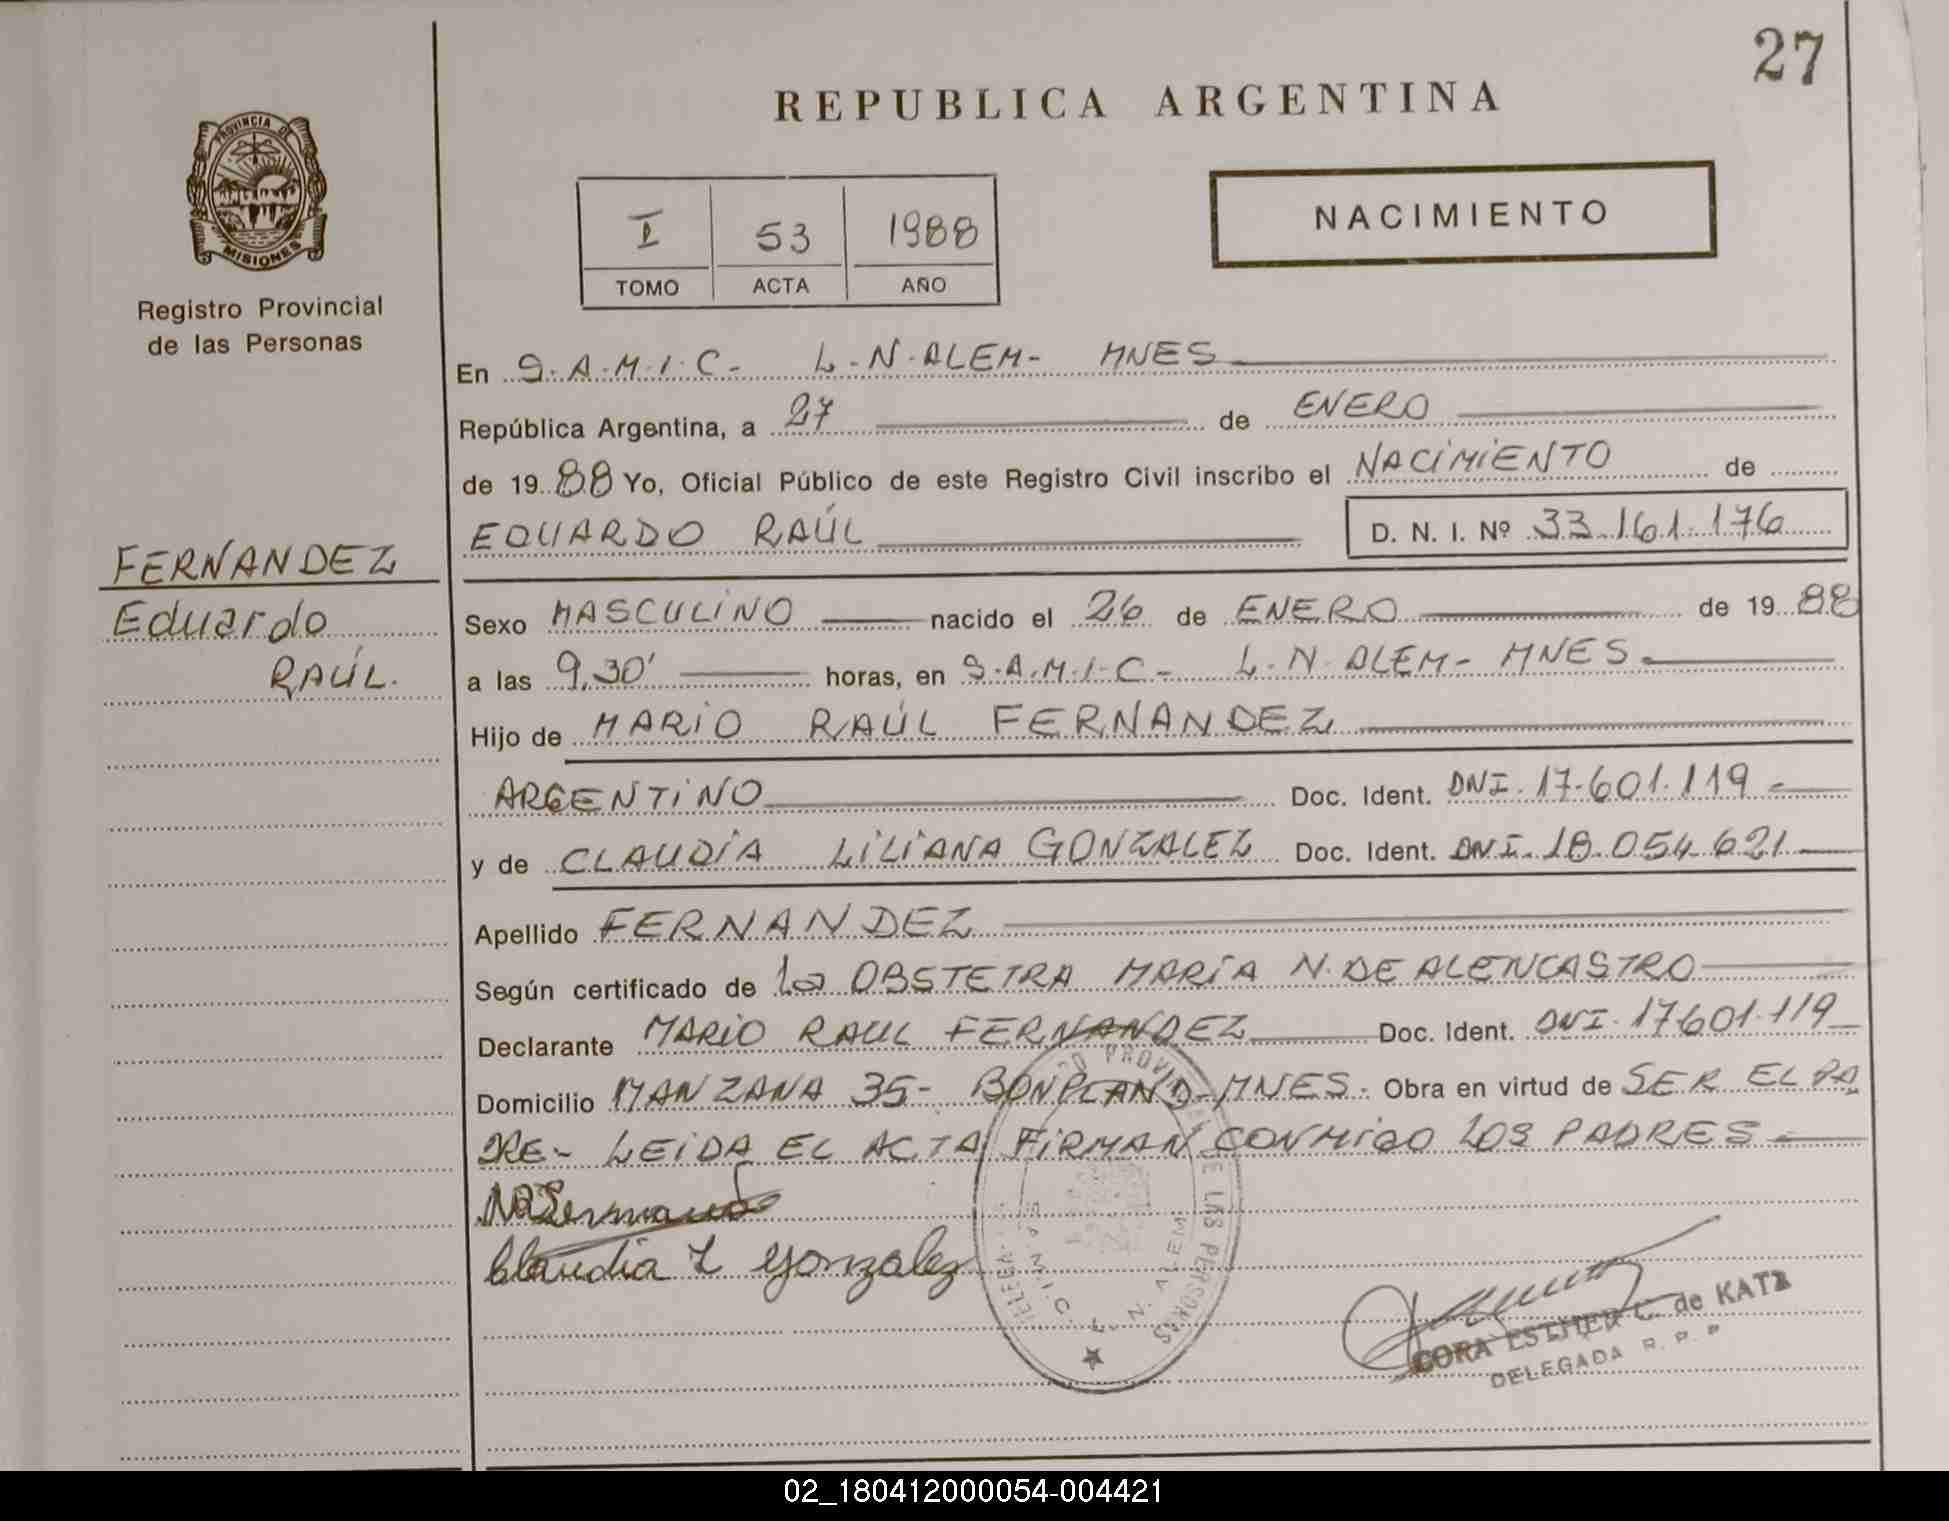 27
REPUBLICA ARGENTINA
PROVINCIA DE
MISIONES
Registro Provincial
de las Personas
I 53 1988
TOMO ACTA AÑO
NACIMIENTO
En S.A.M.I.C- L.N.ALEM- MNES
República Argentina, a 27 de ENERO
de 1988 Yo, Oficial Público de este Registro Civil inscribo el NACIMIENTO de
EDUARDO RAÚL D. N. I. Nº 33.161.176
FERNANDEZ
Eduardo
RAÚL.
Sexo MASCULINO nacido el 26 de ENERO de 1988
a las 9,30' horas, en S.A.M.I.C- L.N.ALEM- MNES.
Hijo de MARIO RAÚL FERNANDEZ
ARGENTINO Doc. Ident. DNI. 17.601.119-
y de CLAUDIA LILIANA GONZALEZ Doc. Ident. DNI. 18.054.621
Apellido FERNANDEZ
Según certificado de la OBSTETRA MARÍA N. DE ALENCASTRO
Declarante MARIO RAUL FERNANDEZ Doc. Ident. DNI. 17601.119
Domicilio MANZANA 35- BONPLAND-MNES. Obra en virtud de SER EL PA
DRE- LEIDA EL ACTA FIRMAN CONMIGO LOS PADRES
Claudia L Gonzalez
DE LAS PERSONAS
S.A.M.I.C.
L. N. ALEM
CORA ESTHER C. de KATZ
DELEGADA R. P. P
02_180412000054-004421